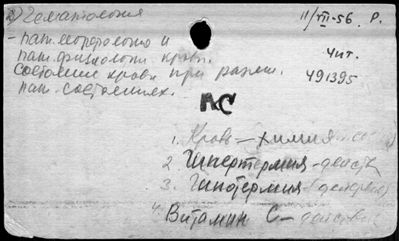 2) Гематология
11/VII-56 Р.
- пат. морфология и
пат. физиология крови.
Чит.
состояние крови при разл.
491395
пат. состояниях.
АС
1. Кровь — химия
2 Гипертермия - действ
3. Гипотермия -
4. Витамин С — действие